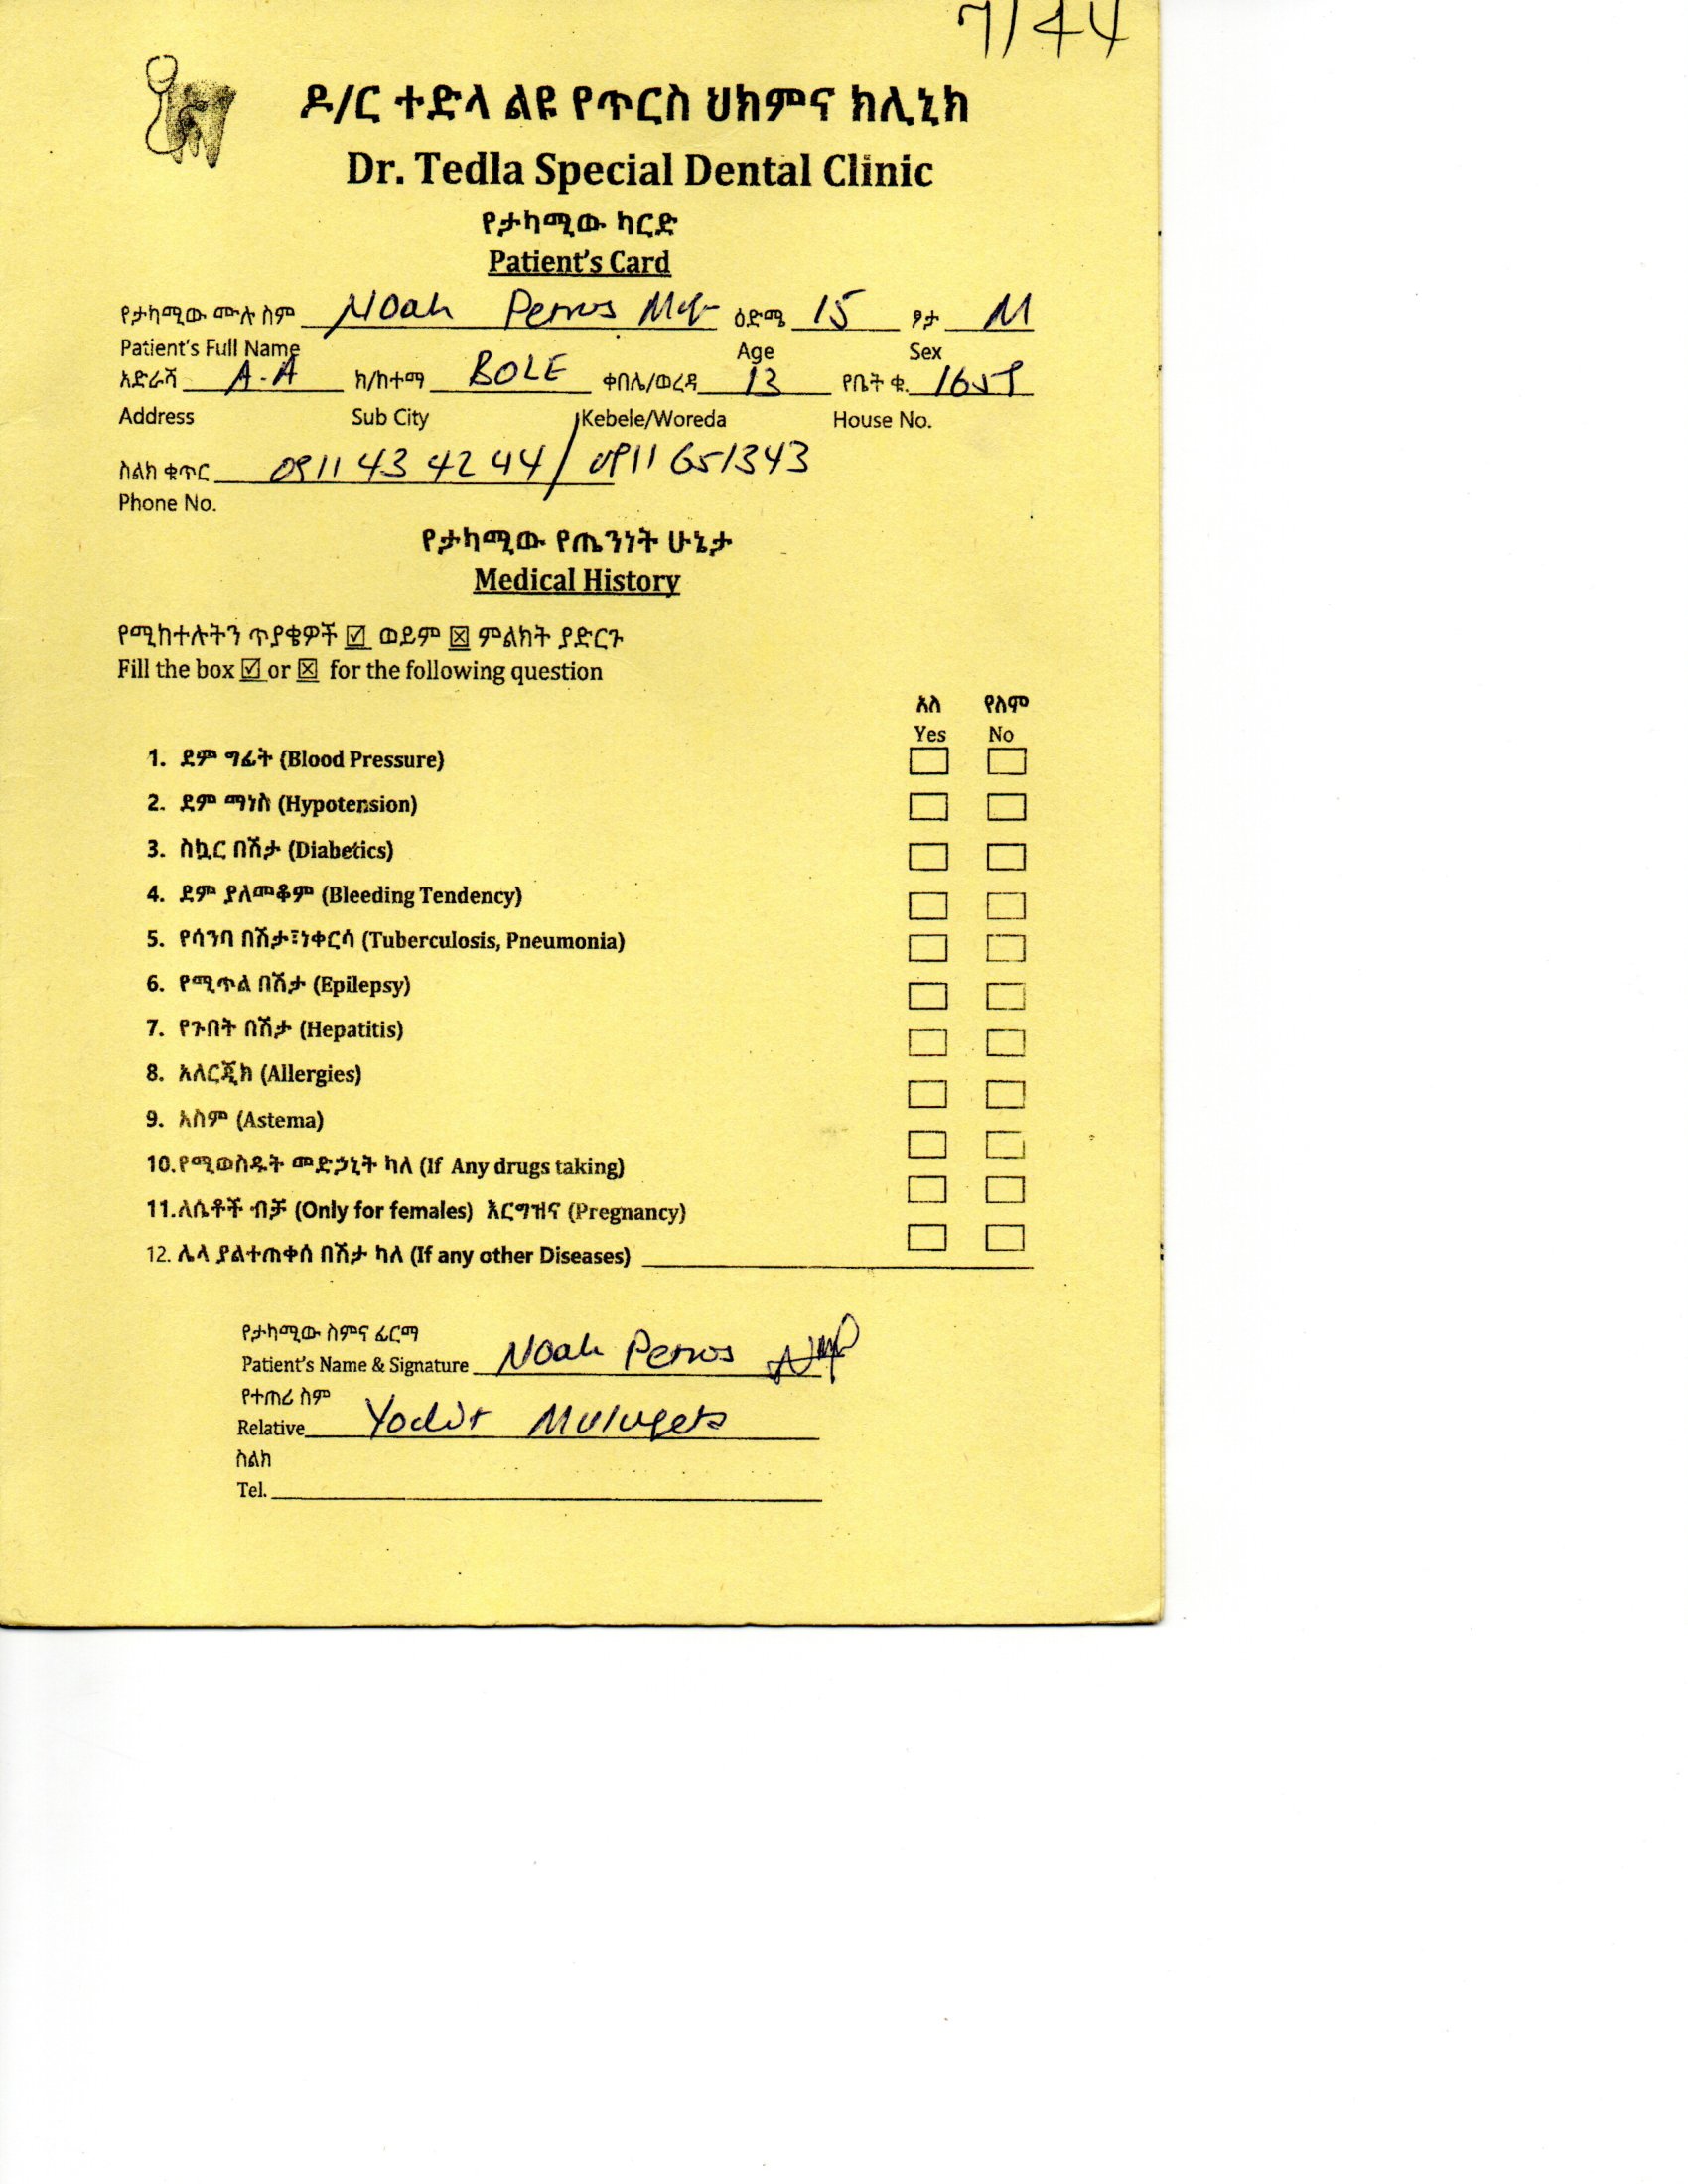 7/44
ዶ/ር ተድላ ልዩ የጥርስ ህክምና ክሊኒክ
Dr. Tedla Special Dental Clinic
የታካሚው ካርድ
Patient's Card
የታካሚው ሙሉ ስም Noah Petros ዕድሜ 15 ፆታ M
Patient's Full Name Age Sex
አድራሻ A.A ክ/ከተማ BOLE ቀበሌ/ወረዳ 13 የቤት ቁ.
Address Sub City Kebele/Woreda House No.
ስልክ ቁጥር 0911 43 42 44 / 0911 651343
Phone No.
የታካሚው የጤንነት ሁኔታ
Medical History
የሚከተሉትን ጥያቄዎች ☑ ወይም ☒ ምልክት ያድርጉ
Fill the box ☑ or ☒ for the following question
አለ የለም
Yes No
1. ደም ግፊት (Blood Pressure)
2. ደም ማነስ (Hypotension)
3. ስኳር በሽታ (Diabetics)
4. ደም ያለመቆም (Bleeding Tendency)
5. የሳንባ በሽታ፣ነቀርሳ (Tuberculosis, Pneumonia)
6. የሚጥል በሽታ (Epilepsy)
7. የጉበት በሽታ (Hepatitis)
8. አለርጂክ (Allergies)
9. አስም (Astema)
10.የሚወስዱት መድኃኒት ካለ (If Any drugs taking)
11.ለሴቶች ብቻ (Only for females) እርግዝና (Pregnancy)
12. ሌላ ያልተጠቀሰ በሽታ ካለ (If any other Diseases)
የታካሚው ስምና ፊርማ
Patient's Name & Signature Noah Petros
የተጠሪ ስም
Relative Yodit Mulugeta
ስልክ
Tel.